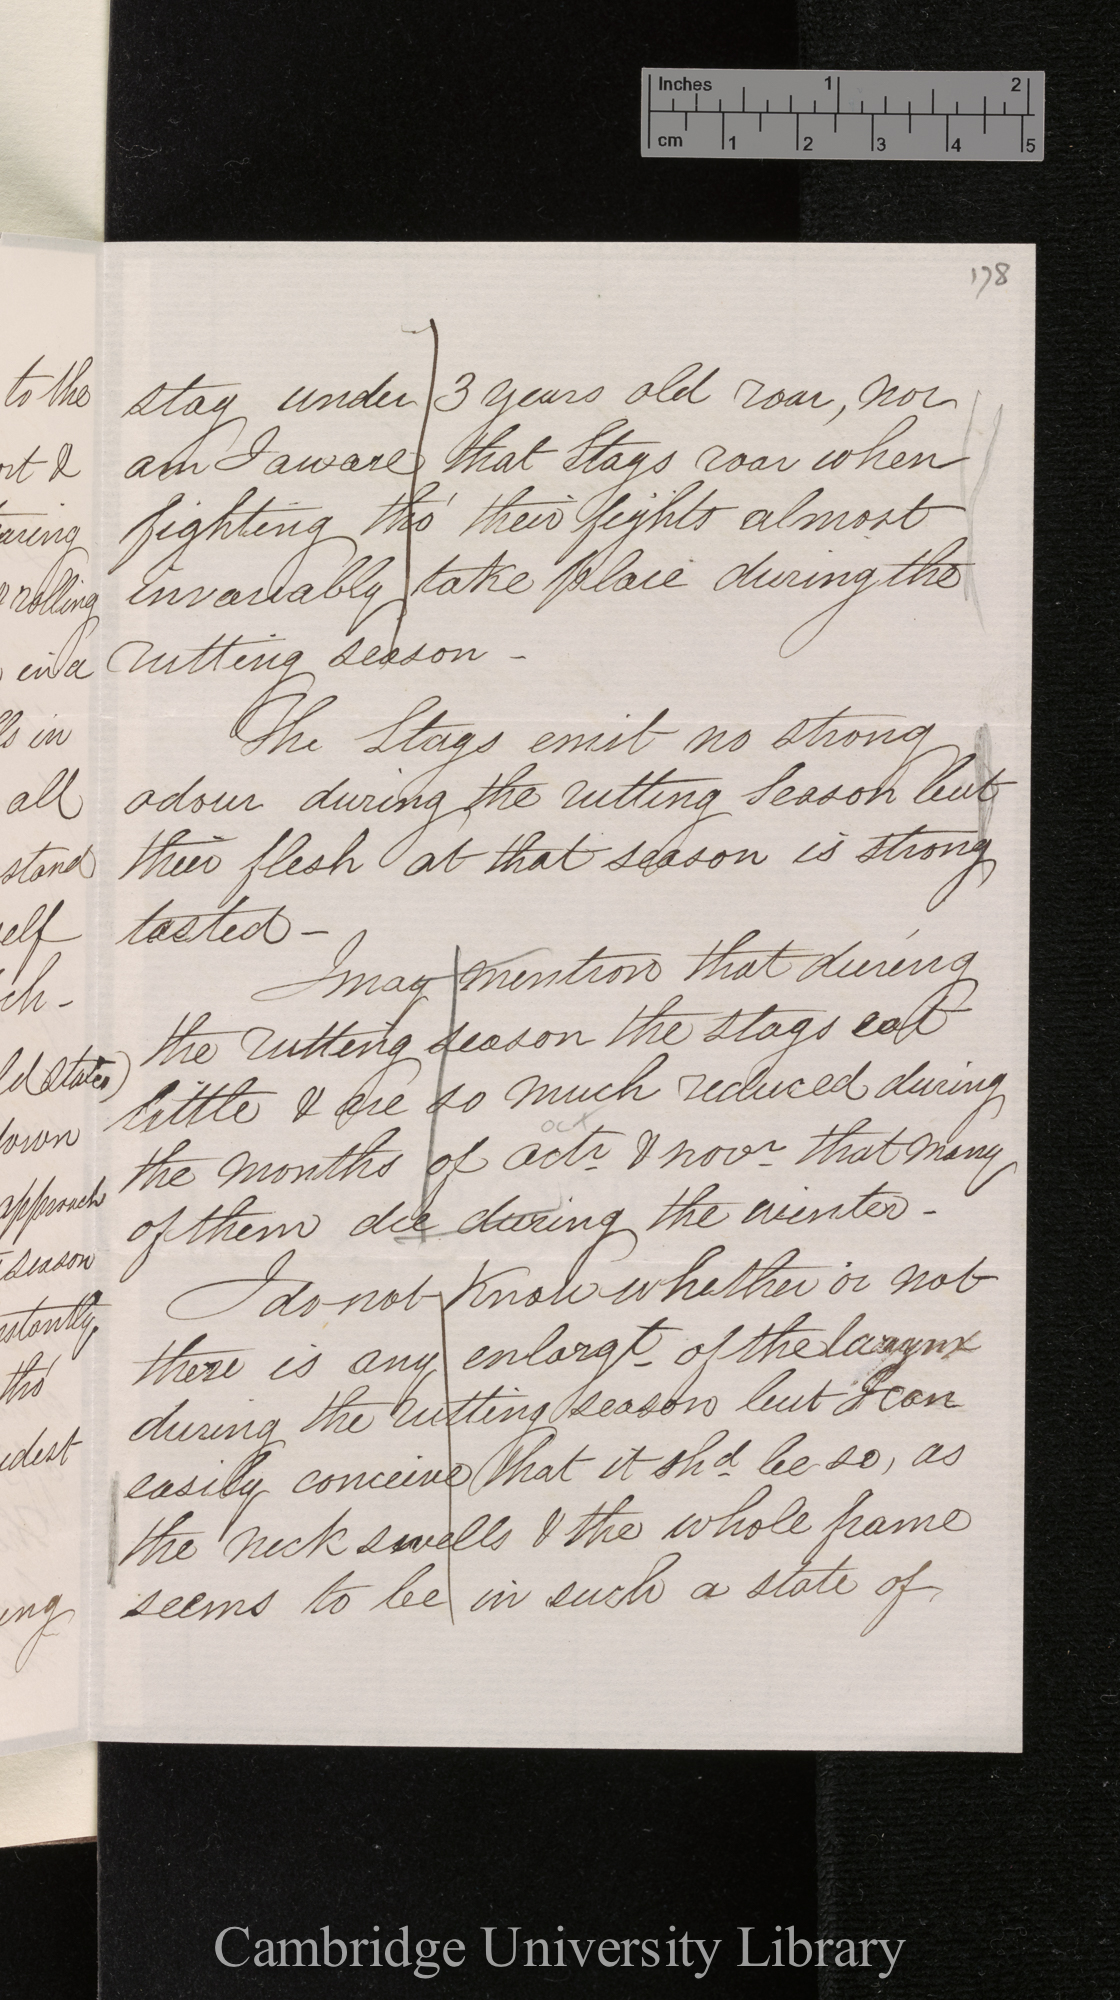 Inches 1 2
cm 1 2 3 4 5
178
to the
rt &
aring
& rolling
in a
ls in
all
stand
elf
ch -
ld states)
down
approach
season
nstantly,
tho'
idest
ing
stag under 3 years old roar, nor
am I aware that Stags roar when
fighting tho' their fights almost
invariably take place during the
rutting season -
The Stags emit no strong
odour during the rutting Season but
their flesh at that season is strong
tasted -
I may mention that during
the rutting season the stags eat
little & are so much reduced during
oct
the months of octr. & novr. that many
of them die during the winter -
I do not know whether or not
there is any enlargt. of the larynx
during the rutting season but I can
easily conceive that it shd. be so, as
the neck swells & the whole frame
seems to be in such a state of
Cambridge University Library